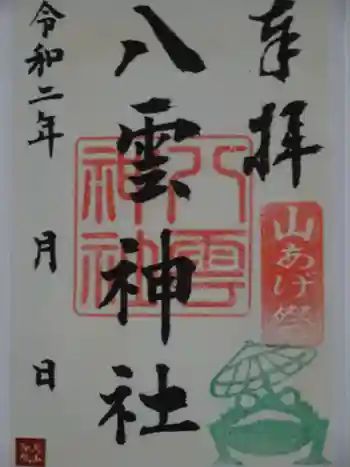 奉拝
山あげ祭
八雲神社
八雲
神社
令和二年 月 日